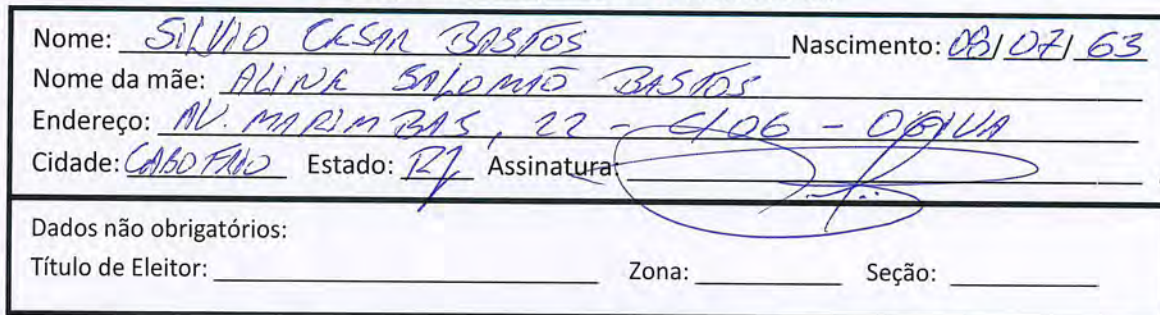 Nome: SILVIO CESAR BASTOS Nascimento: 08/07/63
Nome da mãe: ALINE SALOMÃO BASTOS
Endereço: AV. MARIMBAS, 22 - C/06 - OGIVA
Cidade: CABO FRIO Estado: RJ Assinatura:
Dados não obrigatórios:
Título de Eleitor: Zona: Seção: